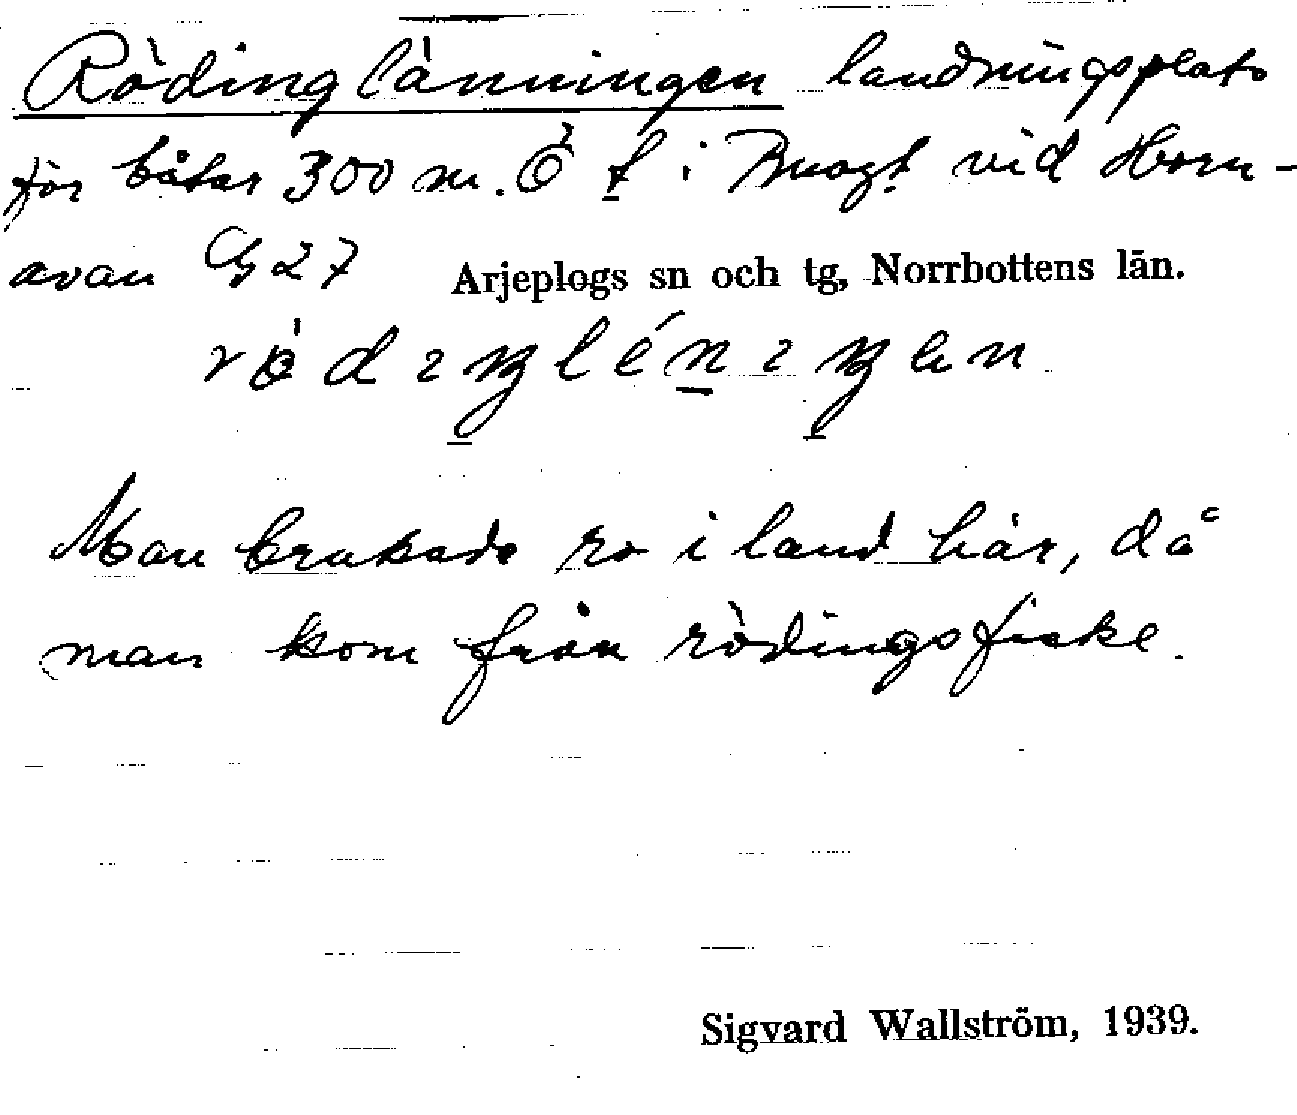 Rödinglänningen landningsplats
för båtar 300 m. Ö f i Buogt vid Horn-
avan G 27 Arjeplogs sn och tg, Norrbottens län.
Man brukade ro i land här, då
man kom från rödingsfiske.
Sigvard Wallström, 1939.